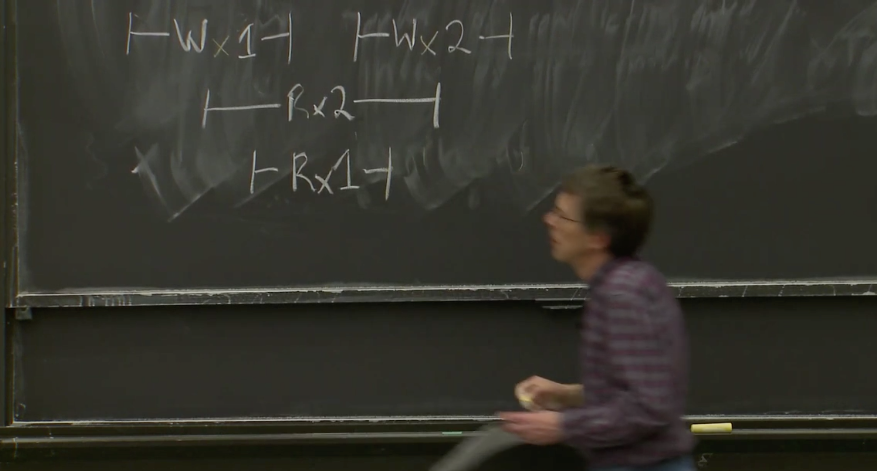 |-Wx1-| |-Wx2-|
|-Rx2-|
|-Rx1-|